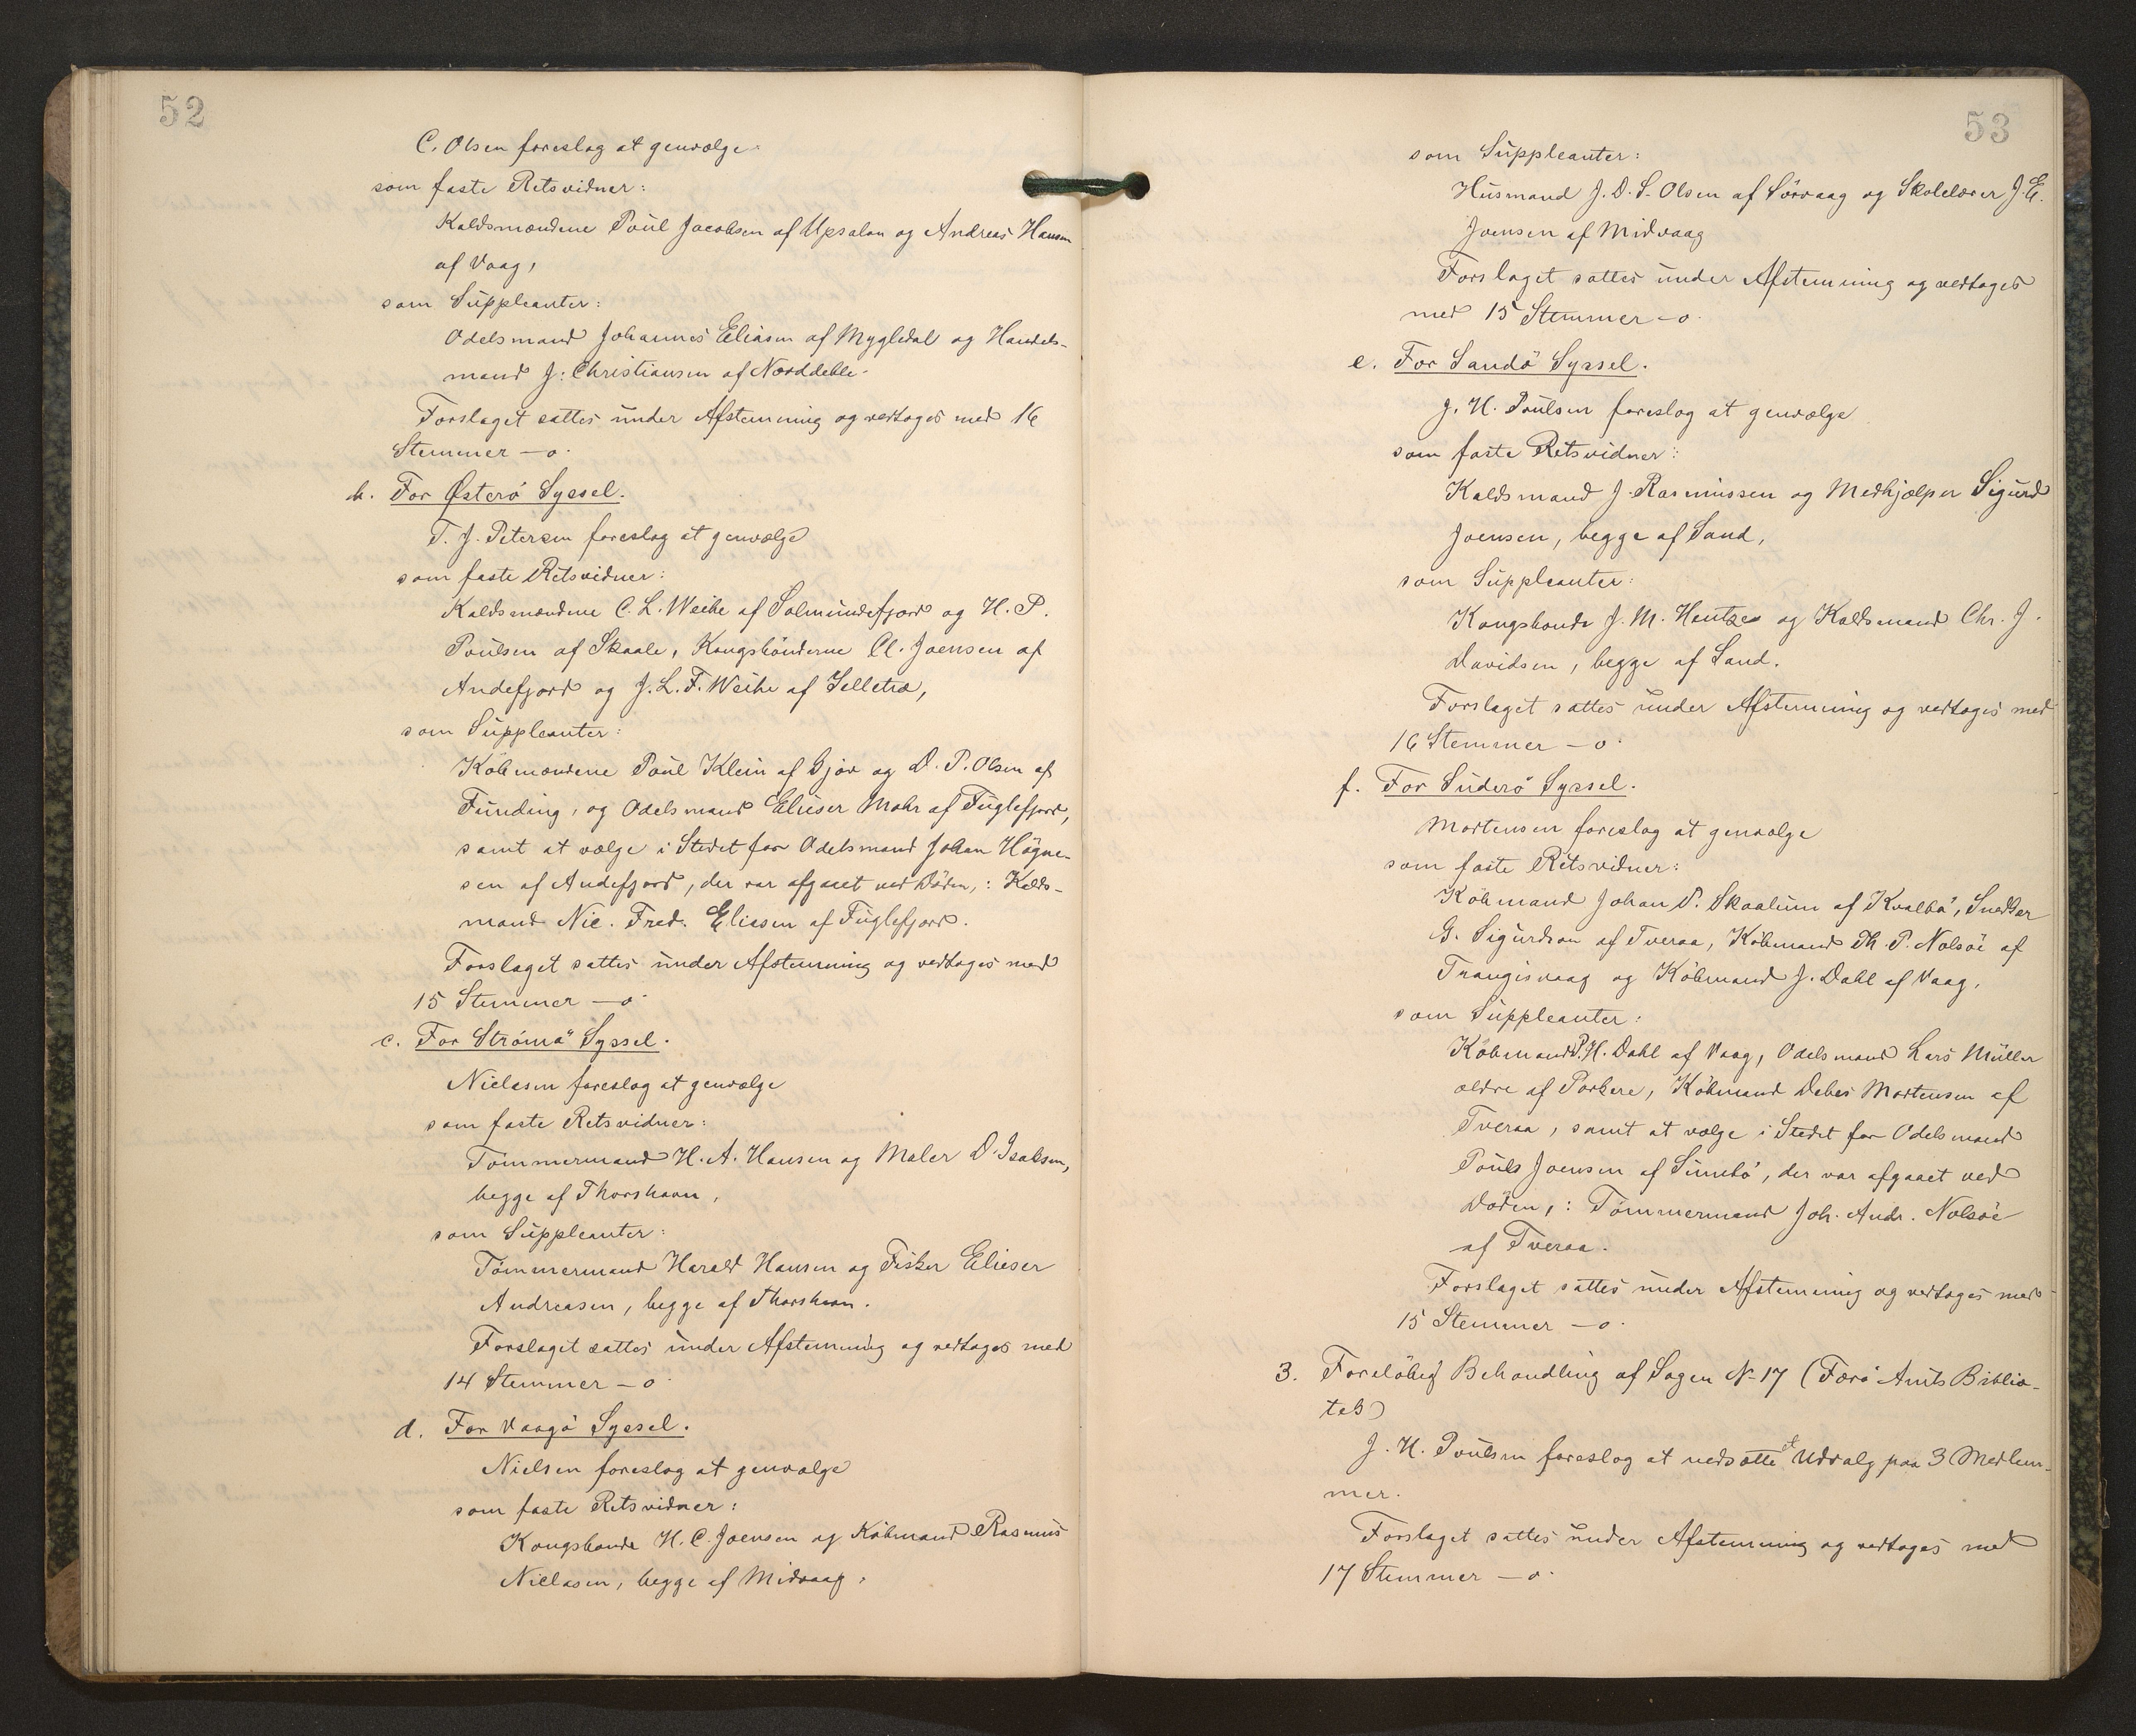 52
C. Olsen foreslog at genvælge
som faste Retsvidner:
Kaldsmændene Poul Jacobsen af Upsalen og Andreas Hansen
af Vaag,
som Suppleanter:
Odelsmand Johannes Eliasen af Mygledal og Handels-
mand J. Christiansen af Norddeble.
Forslaget sattes under Afstemning og vedtoges med 16
Stemmer – o.
b. For Østerö Syssel.
T. J. Petersen foreslog at genvælge
som faste Retsvidner:
Kaldsmændene C. L. Weihe af Solmundefjord og H. P.
Poulsen af Skaale, Kongsbönderne Cl. Joensen af
Andefjord og J. L. F. Weihe af Selletræ,
som Suppleanter:
Köbmændene Poul Klein af Gjov og D. P. Olsen af
Funding, og Odelsmand Elieser Mohr af Fuglefjord,
samt at vælge i Stedet for Odelsmand Johan Högne-
sen af Andefjord, der var afgaaet ved Döden,: Kalds-
mand Nic. Fred. Eliasen af Fuglefjord.
Forslaget sattes under Afstemning og vedtoges med
15 Stemmer – o.
c. For Strömö Syssel.
Nielsen foreslog at genvælge
som faste Retsvidner:
Tömmermand H. A. Hansen og Maler D. Isaksen,
begge af Thorshavn,
som Suppleanter:
Tömmermand Harald Hansen og Fisker Elieser
Andreasen, begge af Thorshavn.
Forslaget sattes under Afstemning og vedtoges med
14 Stemmer – o
d. For Vaagö Syssel.
Nielsen foreslog at genvælge
som faste Retsvidner:
Kongsbonde H. C. Joensen og Köbmand Rasmus
Nielsen, begge af Midvaag,
53
som Suppleanter:
Husmand J. D. S. Olsen af Sörvaag og Skolelærer J. E.
Joensen af Midvaag
Forslaget sattes under Afstemning og vedtoges
med 15 Stemmer – o.
e. For Sandö Syssel.
J. H. Poulsen foreslog at genvælge
som faste Retsvidner:
Kaldsmand J. Rasmussen og Medhjælper Sigurd
Joensen, begge af Sand,
som Suppleanter:
Kongsbonde J. M. Hentze og Kaldsmand Chr. J.
Davidsen, begge af Sand.
Forslaget sattes under Afstemning og vedtoges med
16 Stemmer – o.
f. For Suderö Syssel.
Mortensen foreslog at genvælge
som faste Retsvidner:
Köbmand Johan P. Skaalum af Kvalbö, Snedker
G. Sigurdson af Tveraa, Köbmand Th. P. Nolsöe af
Trangisvaag og Köbmand J. Dahl af Vaag,
som Suppleanter:
Köbmand P. H. Dahl af Vaag, Odelsmand Lars Müller
ældre af Porkere, Köbmand Debes Mortensen af
Tveraa, samt at vælge i Stedet for Odelsmand
Pouls Joensen af Sumbö, der var afgaaet ved
Döden,: Tömmermand Joh. Andr. Nolsöe
af Tveraa.
Forslaget sattes under Afstemning og vedtoges med
15 Stemmer – o.
3. Forelöbig Behandling af Sagen No 17 (Færö Amts Biblio-
tek)
J. H. Poulsen foreslog at nedsætte et Udvalg paa 3 Medlem-
mer.
Forslaget sattes under Afstemning og vedtoges med
17 Stemmer – o.